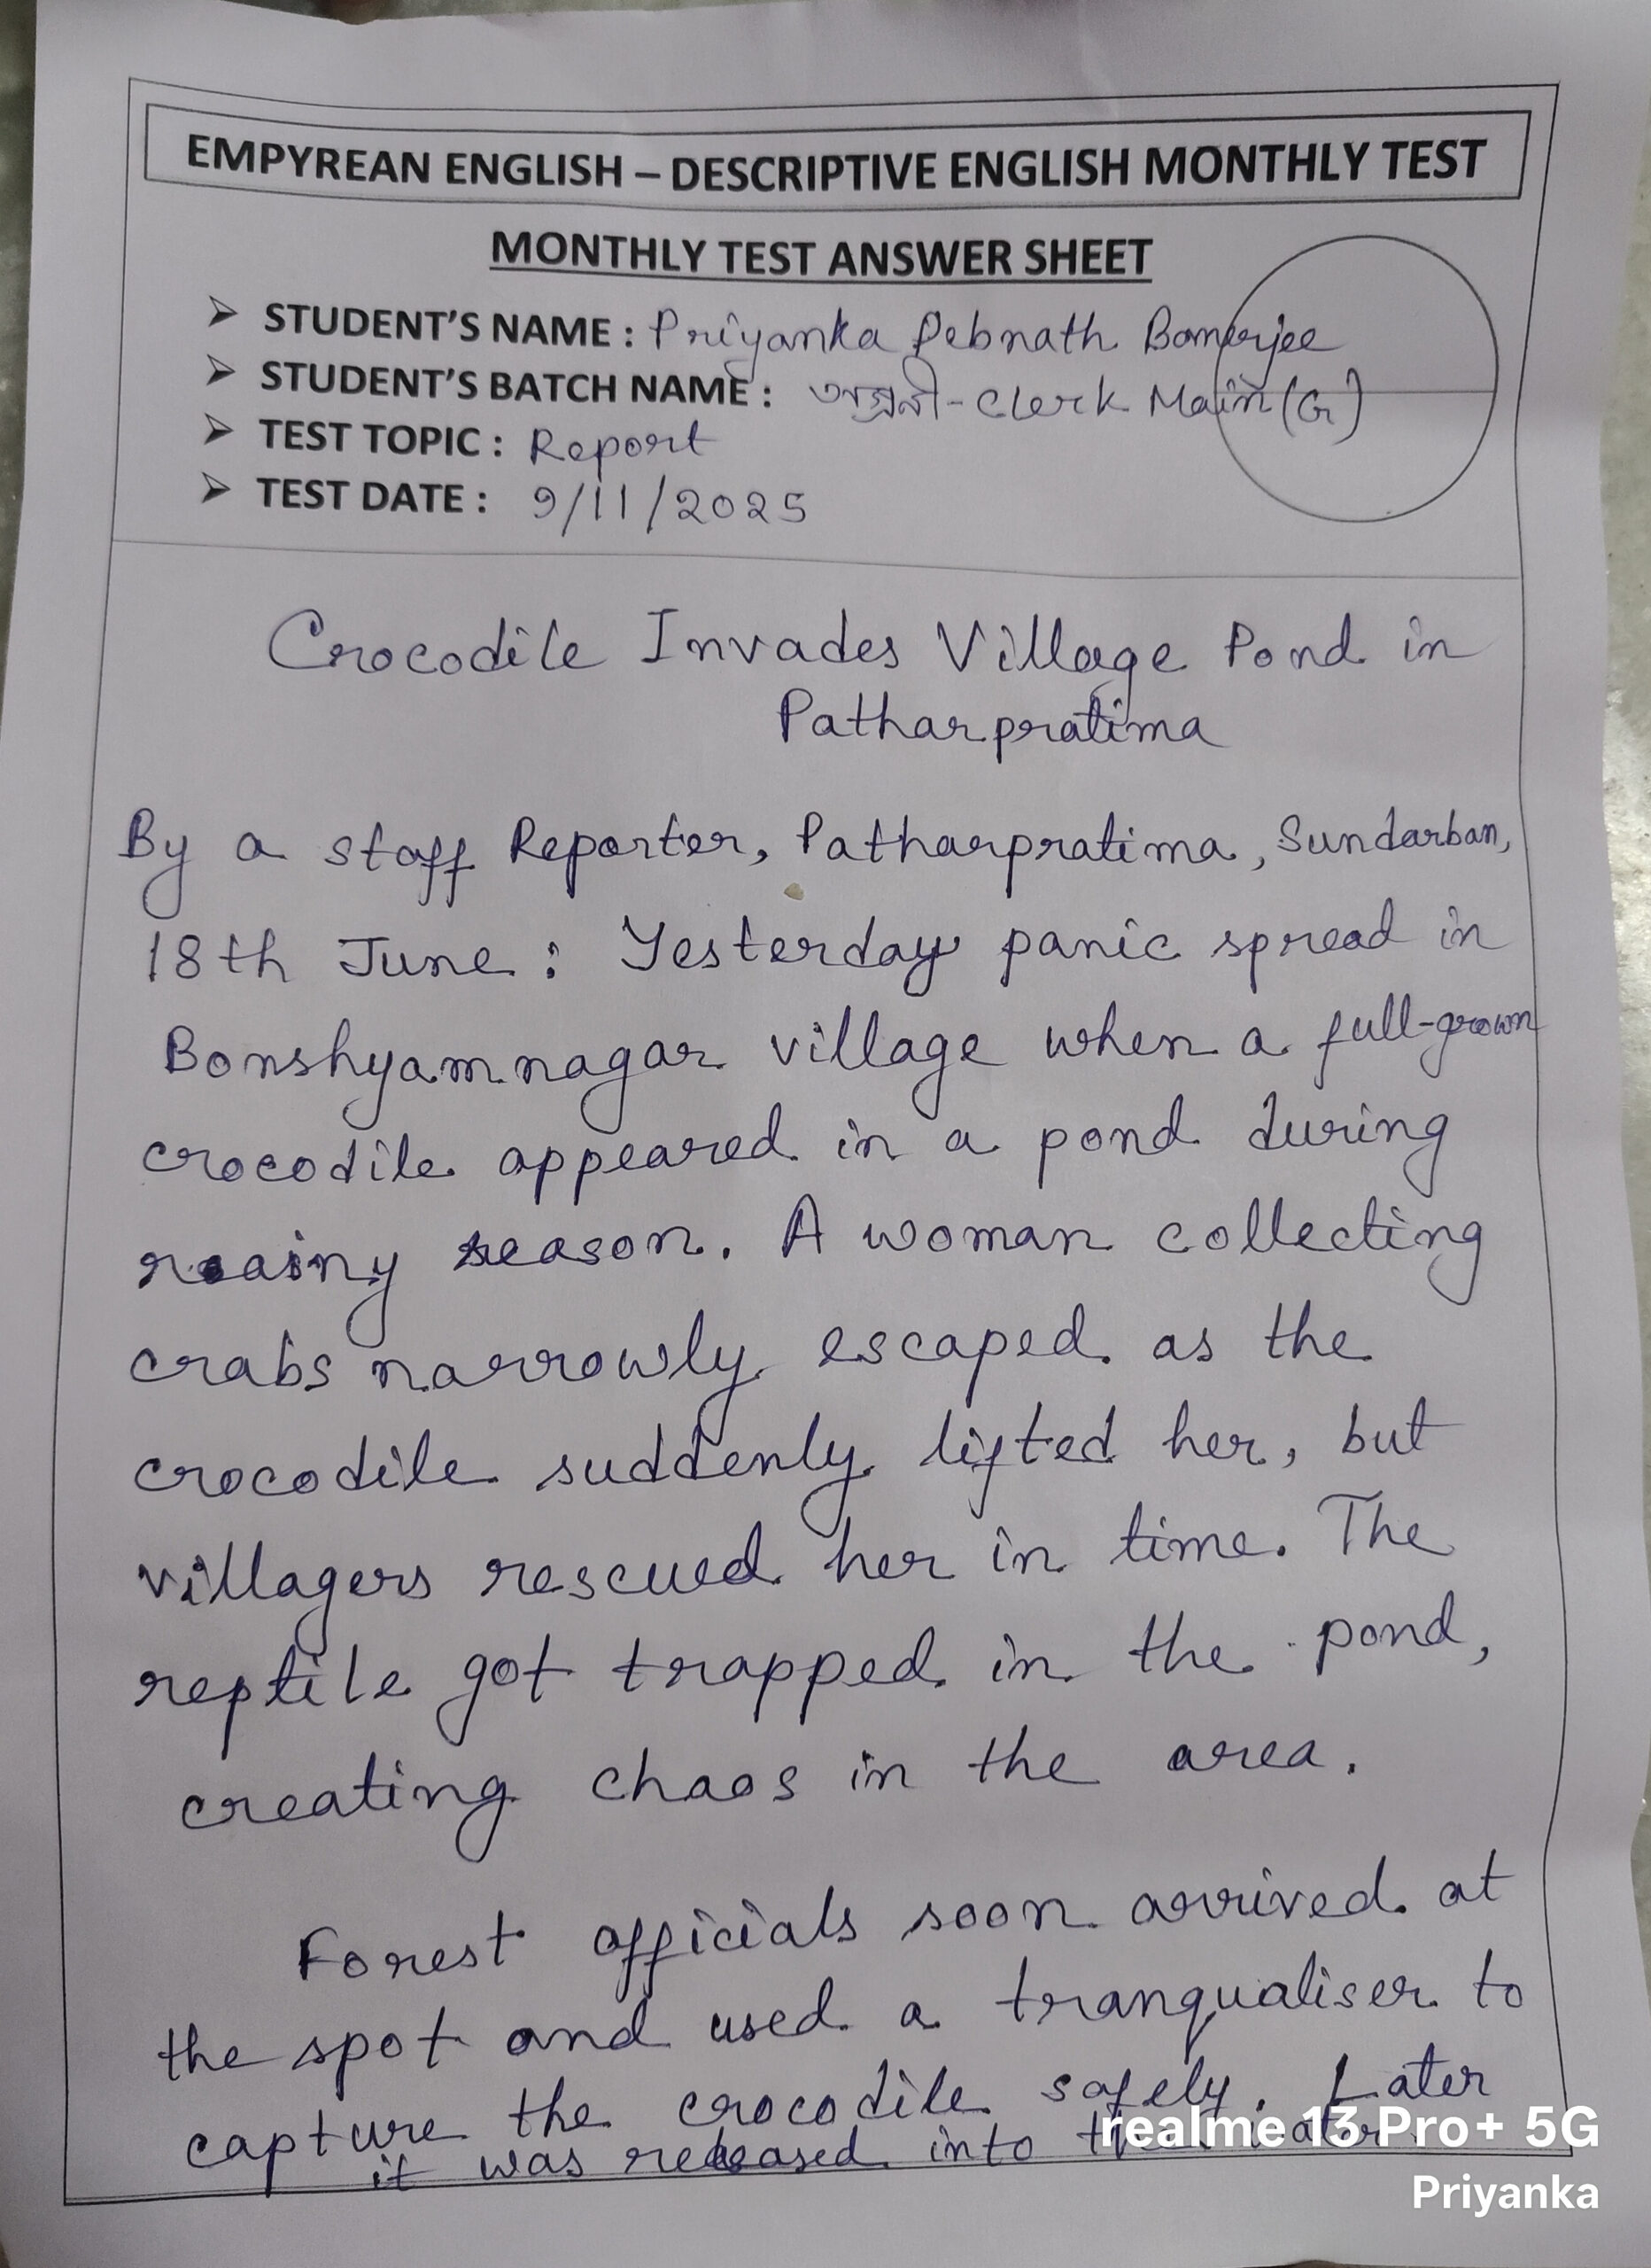 EMPYREAN ENGLISH – DESCRIPTIVE ENGLISH MONTHLY TEST
MONTHLY TEST ANSWER SHEET
➢ STUDENT'S NAME : Priyanka Debnath Banerjee
➢ STUDENT'S BATCH NAME : অগ্রনী - Clerk Main (G)
➢ TEST TOPIC : Report
➢ TEST DATE : 9/11/2025
Crocodile Invades Village Pond in
Patharpratima
By a staff Reporter, Patharpratima, Sundarban,
18th June : Yesterday panic spread in
Bonshyamnagar village when a full-grown
crocodile appeared in a pond during
rainy season. A woman collecting
crabs narrowly escaped as the
crocodile suddenly lifted her, but
villagers rescued her in time. The
reptile got trapped in the pond,
creating chaos in the area.
Forest officials soon arrived at
the spot and used a tranqualiser to
capture the crocodile safely. Later
it was released into the
realme 13 Pro+ 5G
Priyanka